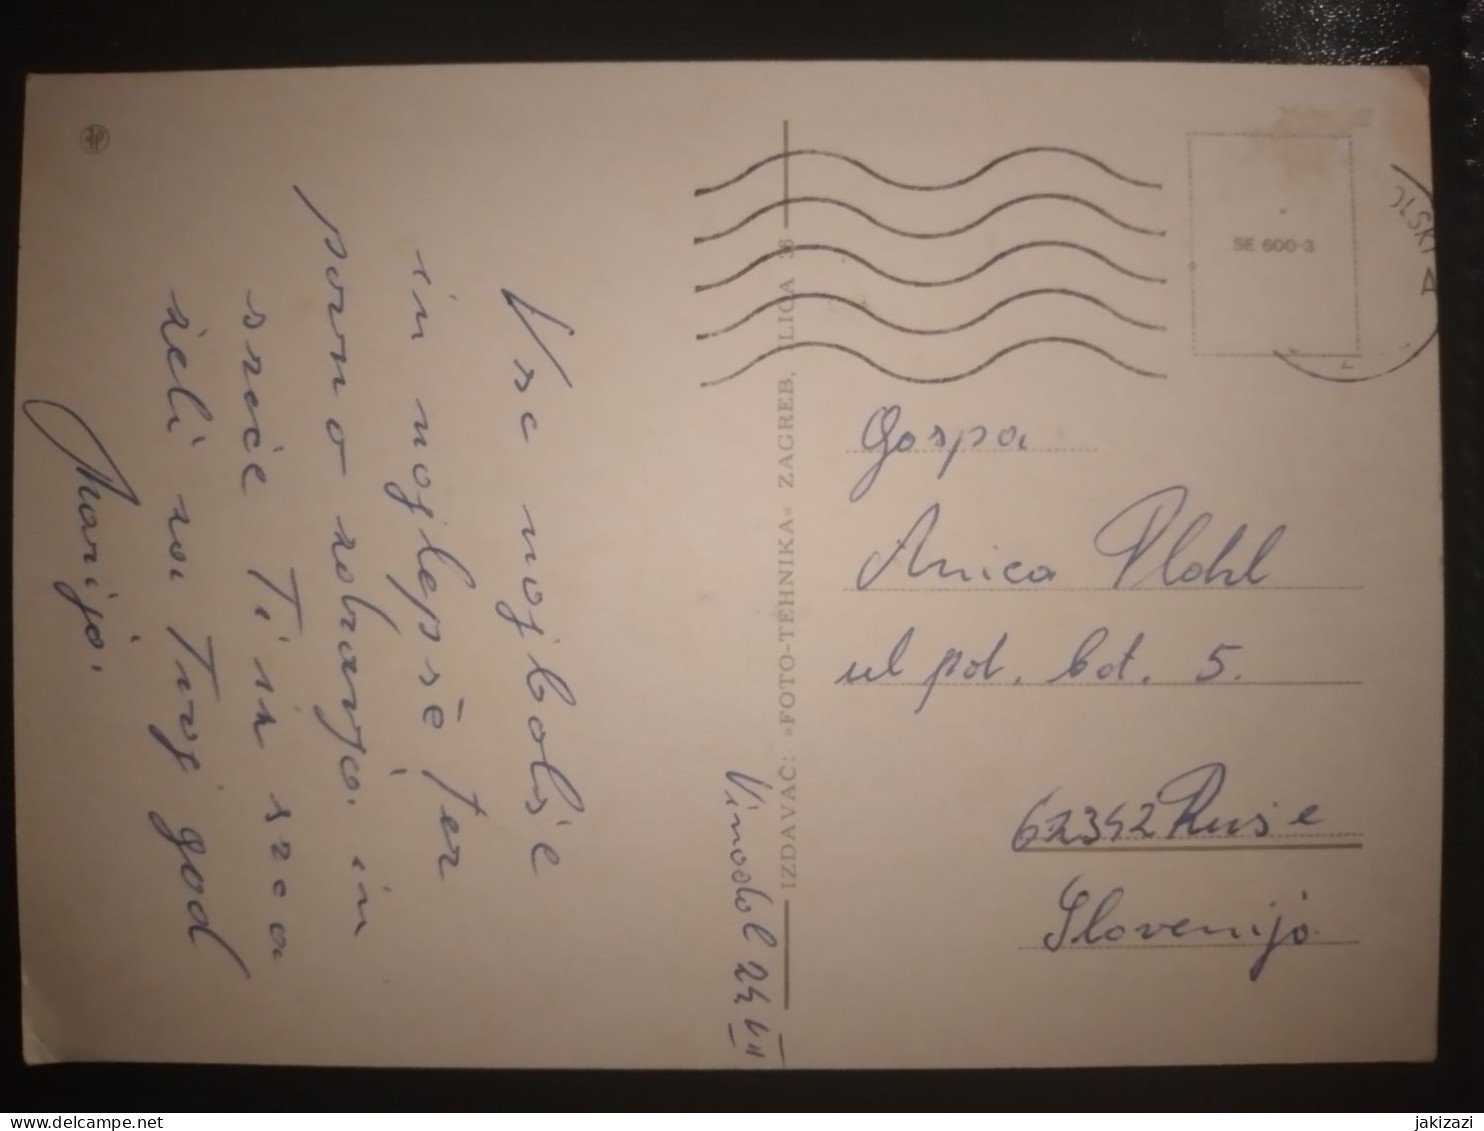 Vse najboljše
in najlepše ter
polno zdravja in
sreče Ti iz srca
želi za Tvoj god
Marija.
Vinodol 24 VII
IZDAVAČ: »FOTO-TEHNIKA« ZAGREB, ILICA 36
SE 600-3
OLSKI
A
Gospa
Anica Plohl
ul pol. bat. 5.
62342 Ruše
Slovenija
delcampe.net
jakizazi